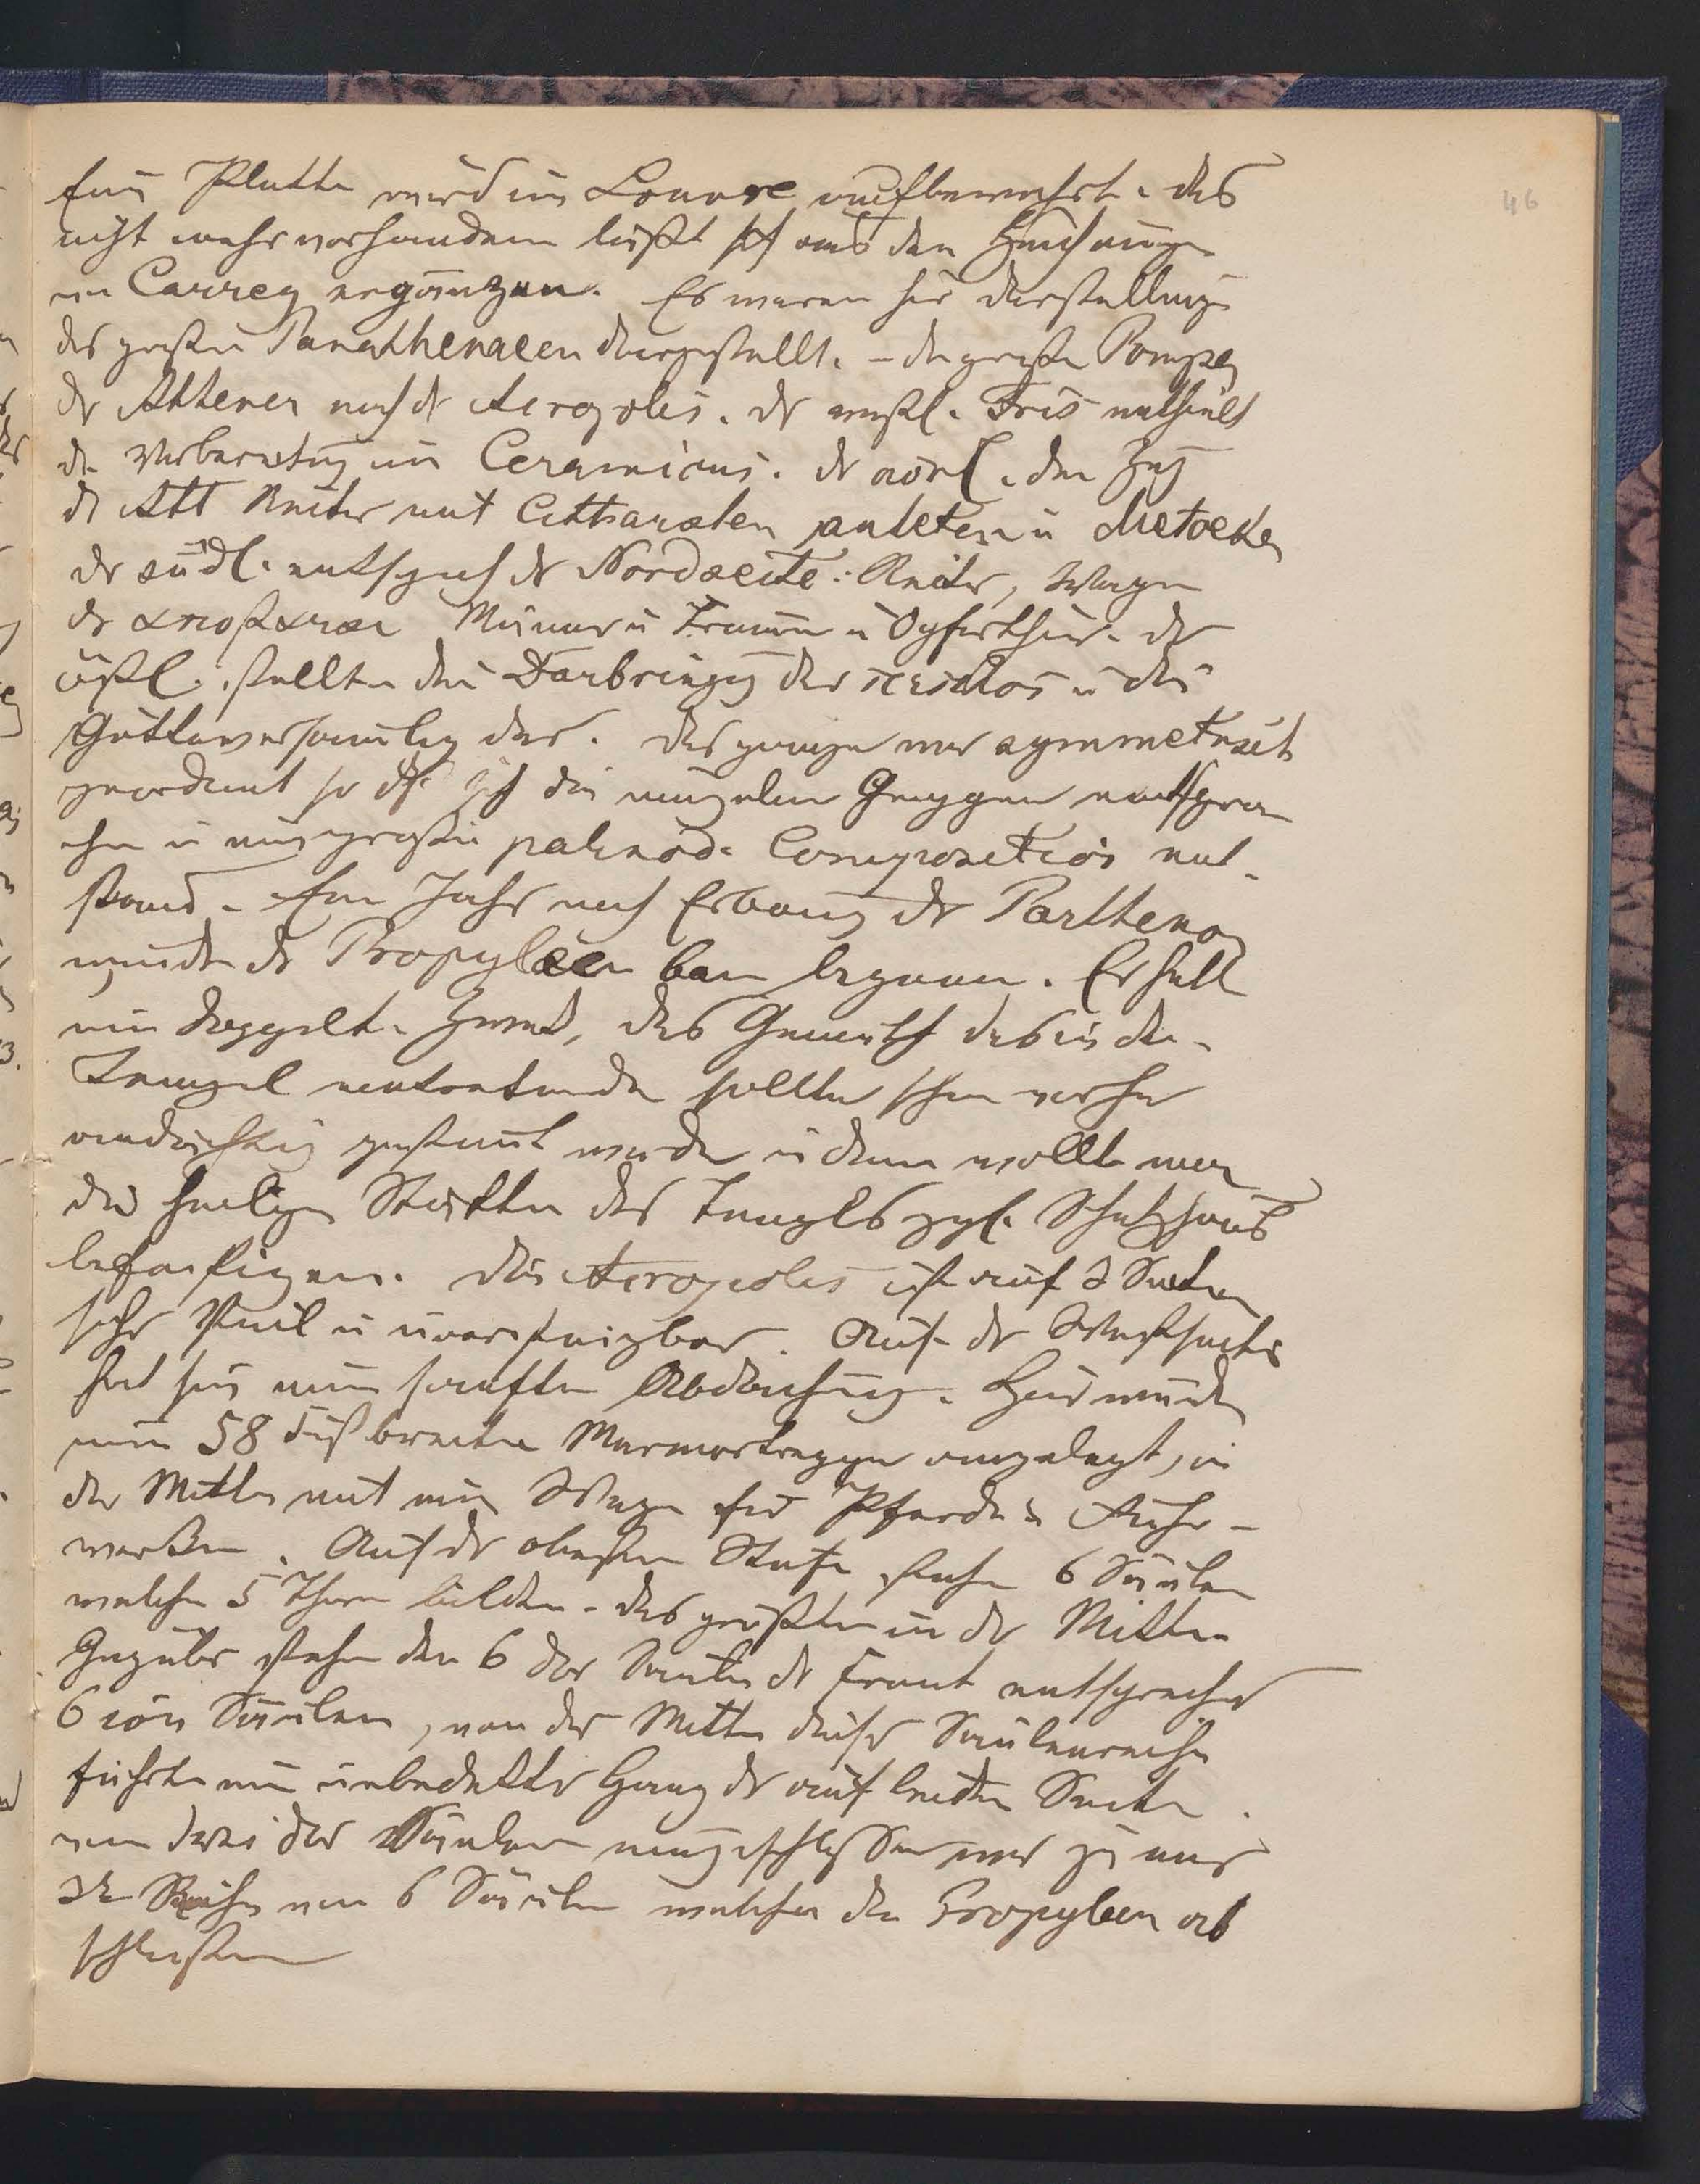 46
Eine Platte wird im Louvre aufbewahrt. das
nicht mehr vorhandene läßt sich aus den Zeichnungen
von Carrey ergänzen. Es waren hie Darstellung
der großen Panathenaeen dargestellt. – die große Pompe
der Athener nach der Acropolis. der westl. Fris enthielt
die Vorbereitung im Ceramicus. der nörl. den Zug
der Att Reiter mit Citharoeten auleten u Metoeken
der südl. entsprach der Nordseite: Reiter, Wagen
der Männer u Frauen u Opferthier. der
östl. stellte die Darbringung des peplos u die
Götterversamlung dar. das ganze war symmetrisch
geordnet so dß sich die einzelnen Gruppen entspra
chen u eine große palinod. Composition ent-
stand. Ein Jahr nach Erbauung der Parthenon
wurde der Propyläen bau begonnen. Er hatt
ein doppelte Zweck, das Gemüth des in den
Tempel eintretenden sollte schon vorher
andächtig gestimmt werden u dann wollte man
die heilige Stätte des Tempels zgl. Schatzhaus
befestigen. die Acropolis ist auf 3 Seiten
sehr steil u unersteigbar. Auf der Westseite
hat sie eine sanfte Abdachung. Hier wurde
eine 58 Fuß breite Marmortreppe angelegt, in
der Mitte mit ein Wege für Pferde u Fuhr-
werken. Auf der obersten Stufe stehen 6 Säulen
welche 5 Thore bilden. das größte in der Mitte.
Gegenüber stehen den 6 dor Säulen der Front entsprechend
6 ion Säulen, von der Mitte dieser Säulenreihe
führte ein unbedeckter Gang der auf beiden Seiten
von drei dor Säulen eingeschlossen war zu einer
3t Reihe von 6 Säulen welche die Propyleen ab
schließen